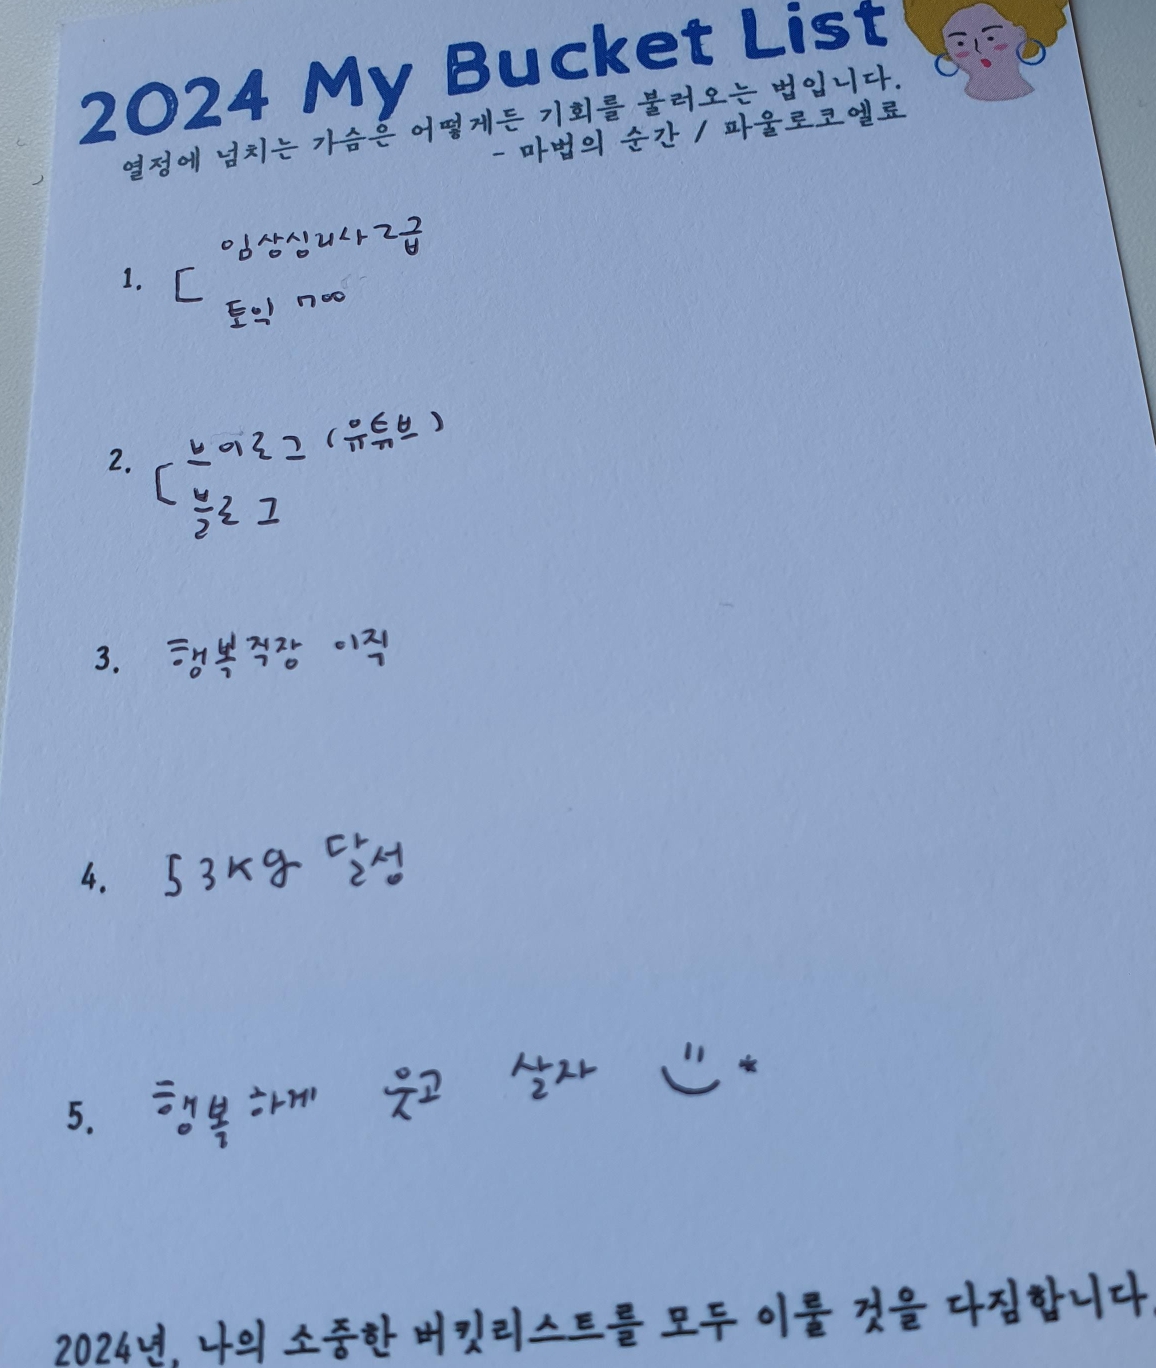 2024 My Bucket List
열정에 넘치는 가슴은 어떻게든 기회를 불러오는 법입니다.
- 마법의 순간 / 파울로코엘료
1. [ 임상심리사 2급
토익 700
2. [ 브이로그 (유튜브)
블로그
3. 행복직장 이직
4. 53kg 달성
5. 행복하게 웃고 살자
2024년, 나의 소중한 버킷리스트를 모두 이룰 것을 다짐합니다.